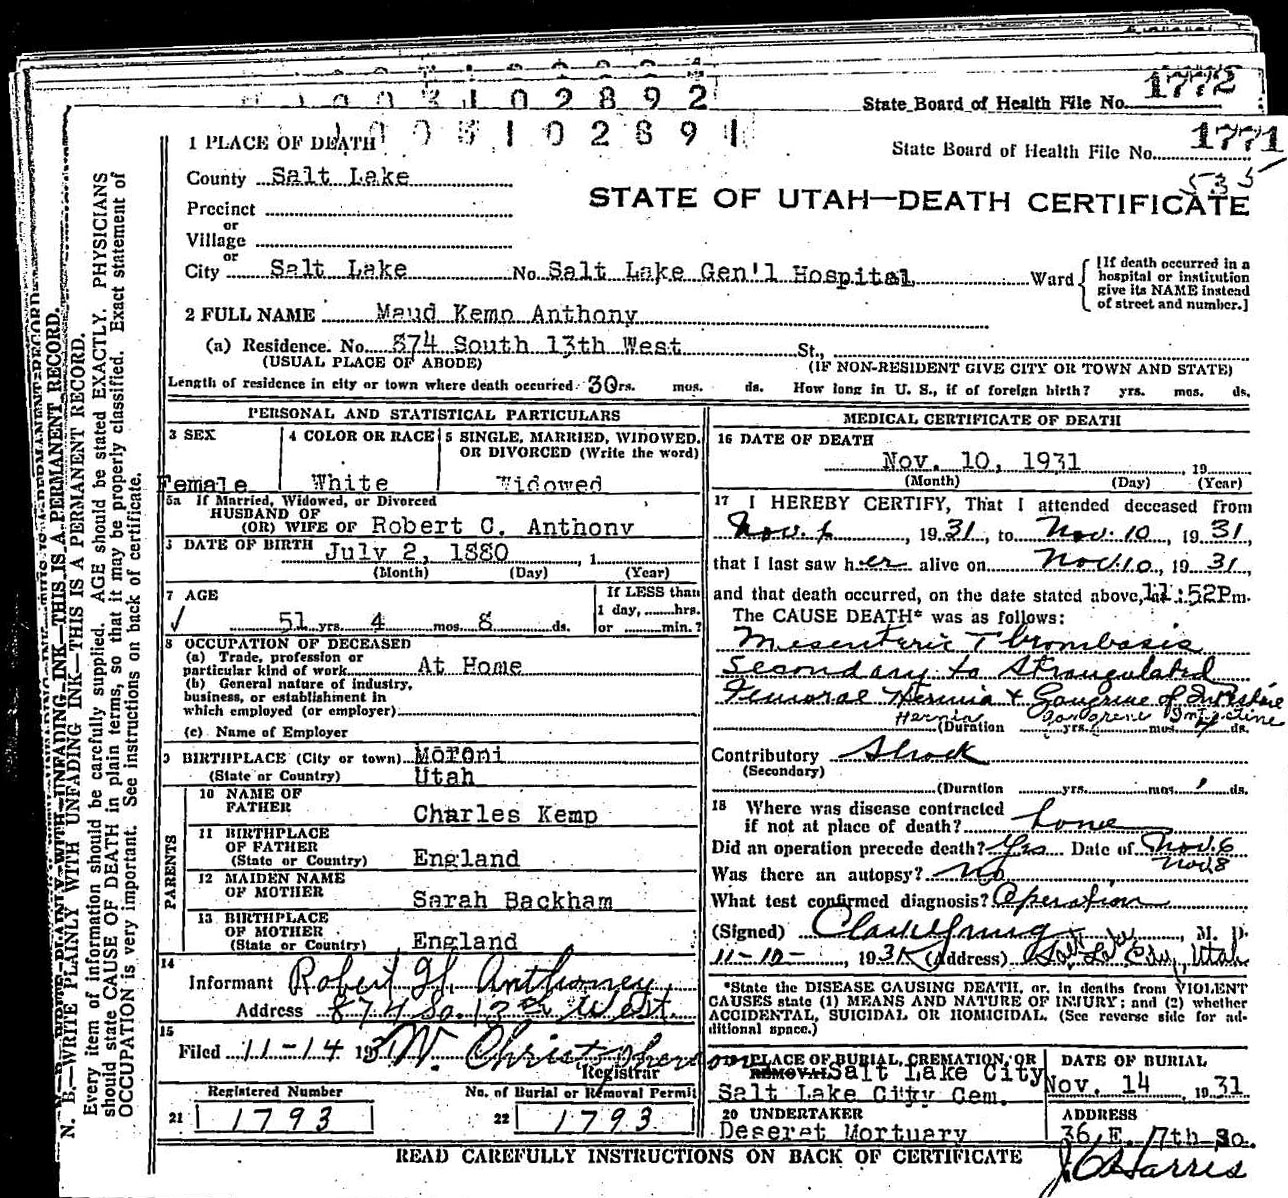 1003102892
State Board of Health File No. 1772
1003102891
State Board of Health File No. 1771
535
1 PLACE OF DEATH
STATE OF UTAH—DEATH CERTIFICATE
County Salt Lake
Precinct
or
Village
or
City Salt Lake No. Salt Lake Gen'l Hospital Ward
[If death occurred in a
hospital or institution
give its NAME instead
of street and number.]
2 FULL NAME Maud Kemp Anthony
(a) Residence. No. 874 South 13th West St.,
(USUAL PLACE OF ABODE) (IF NON-RESIDENT GIVE CITY OR TOWN AND STATE)
Length of residence in city or town where death occurred 30 rs. mos. ds. How long in U. S., if of foreign birth? yrs. mos. ds.
PERSONAL AND STATISTICAL PARTICULARS
3 SEX 4 COLOR OR RACE 5 SINGLE, MARRIED, WIDOWED.
OR DIVORCED (Write the word)
Female White Widowed
5a If Married, Widowed, or Divorced
HUSBAND OF
(OR) WIFE OF Robert C. Anthony
DATE OF BIRTH July 2, 1880, 1
(Month) (Day) (Year)
7 AGE If LESS than
1 day, hrs.
51 yrs. 4 mos. 8 ds. or min.?
8 OCCUPATION OF DECEASED
(a) Trade, profession or
particular kind of work At Home
(b) General nature of industry,
business, or establishment in
which employed (or employer)
(c) Name of Employer
9 BIRTHPLACE (City or town) Moroni
(State or Country) Utah
PARENTS
10 NAME OF
FATHER Charles Kemp
11 BIRTHPLACE
OF FATHER
(State or Country) England
12 MAIDEN NAME
OF MOTHER Sarah Backham
13 BIRTHPLACE
OF MOTHER
(State or Country) England
14
Informant Robert H. Anthoney
Address 874 So. 13th West
15
Filed 11-14 193 W. Christopherson
Registrar
Registered Number No. of Burial or Removal Permit
21 1793 22 1793
MEDICAL CERTIFICATE OF DEATH
16 DATE OF DEATH
Nov. 10, 1931, 19
(Month) (Day) (Year)
17 I HEREBY CERTIFY, That I attended deceased from
Nov. 6, 1931, to Nov. 10, 1931,
that I last saw her alive on Nov. 10, 1931,
and that death occurred, on the date stated above, 11:52P m.
The CAUSE DEATH* was as follows:
Mesenteric Thrombosis
Secondary to Strangulated
Femoral Hernia & Gangrene of Intestine
Hernia Gangrene Intestine
(Duration yrs. mos. ds.
Contributory Shock
(Secondary)
(Duration yrs. mos. 1 ds.
18 Where was disease contracted
if not at place of death? home
Did an operation precede death? Yes Date of Nov. 6
Nov. 8
Was there an autopsy? No
What test confirmed diagnosis? Operation
(Signed) Clark Young, M. D.
11-10-, 1931 (Address) Salt Lake City, Utah
*State the DISEASE CAUSING DEATH, or. in deaths from VIOLENT
CAUSES state (1) MEANS AND NATURE OF INJURY; and (2) whether
ACCIDENTAL, SUICIDAL OR HOMICIDAL. (See reverse side for ad-
ditional space.)
PLACE OF BURIAL, CREMATION, OR DATE OF BURIAL
REMOVAL Salt Lake City
Salt Lake City Cem. Nov. 14 1931
20 UNDERTAKER ADDRESS
Deseret Mortuary 36 E. 7th So.
J. C. Harris
READ CAREFULLY INSTRUCTIONS ON BACK OF CERTIFICATE
N. B.—WRITE PLAINLY WITH UNFADING INK—THIS IS A PERMANENT RECORD.
Every item of information should be carefully supplied. AGE should be stated EXACTLY. PHYSICIANS
should state CAUSE OF DEATH in plain terms, so that it may be properly classified. Exact statement of
OCCUPATION is very important. See instructions on back of certificate.